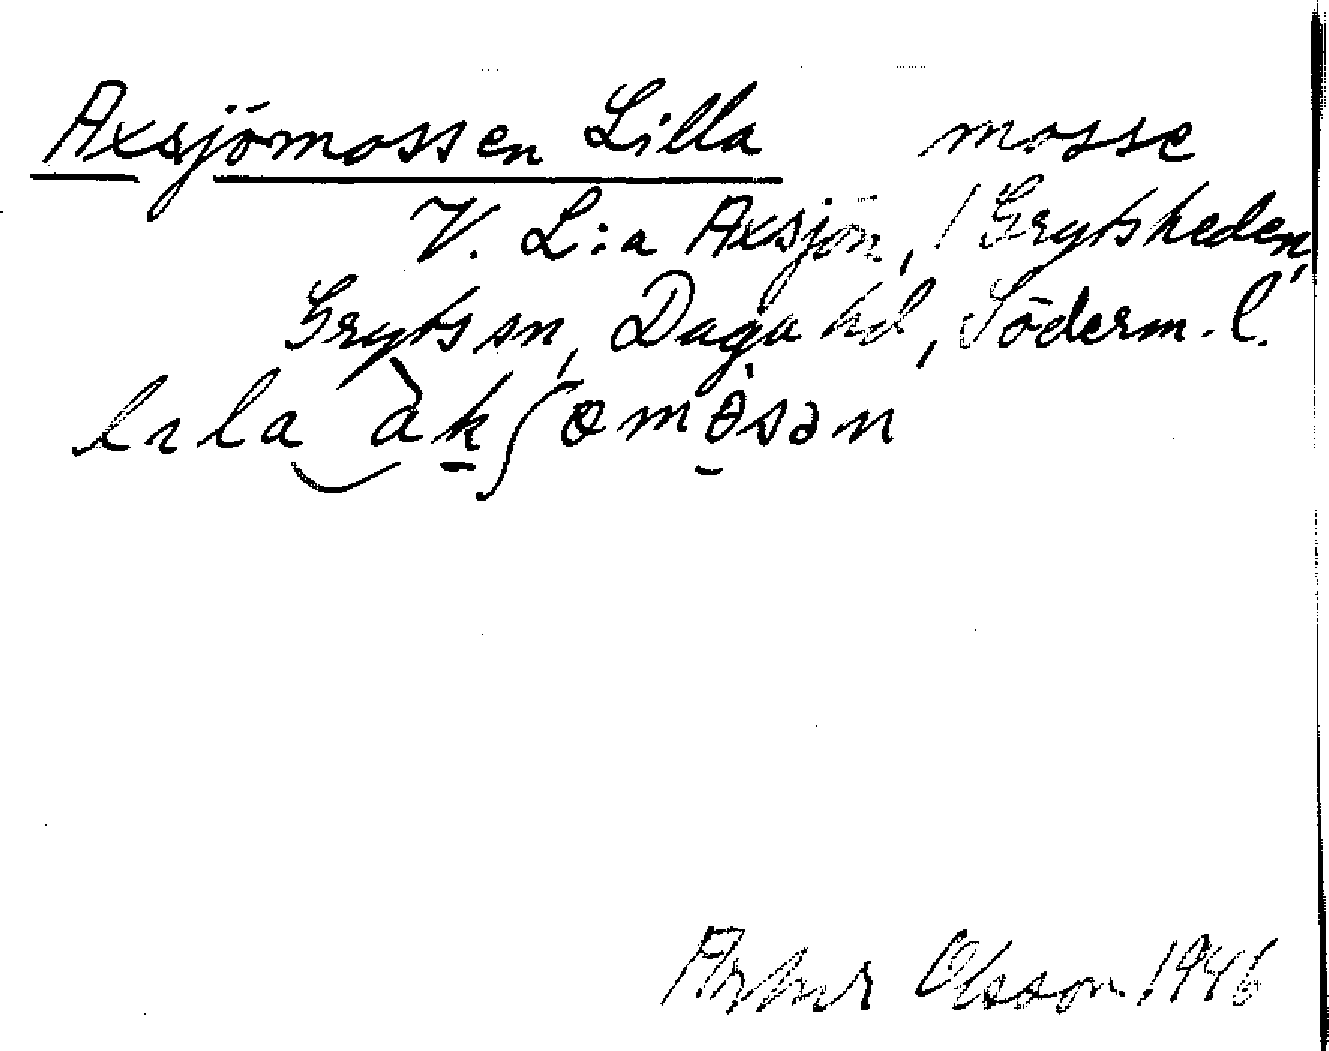 Axsjömossen Lilla mosse
V. L:a Axsjön, / Grytsheden,
Gryts sn, Daga hd, Söderm. l.
lıla àkʃømɵ̀sən
Arthur Olsson 1946